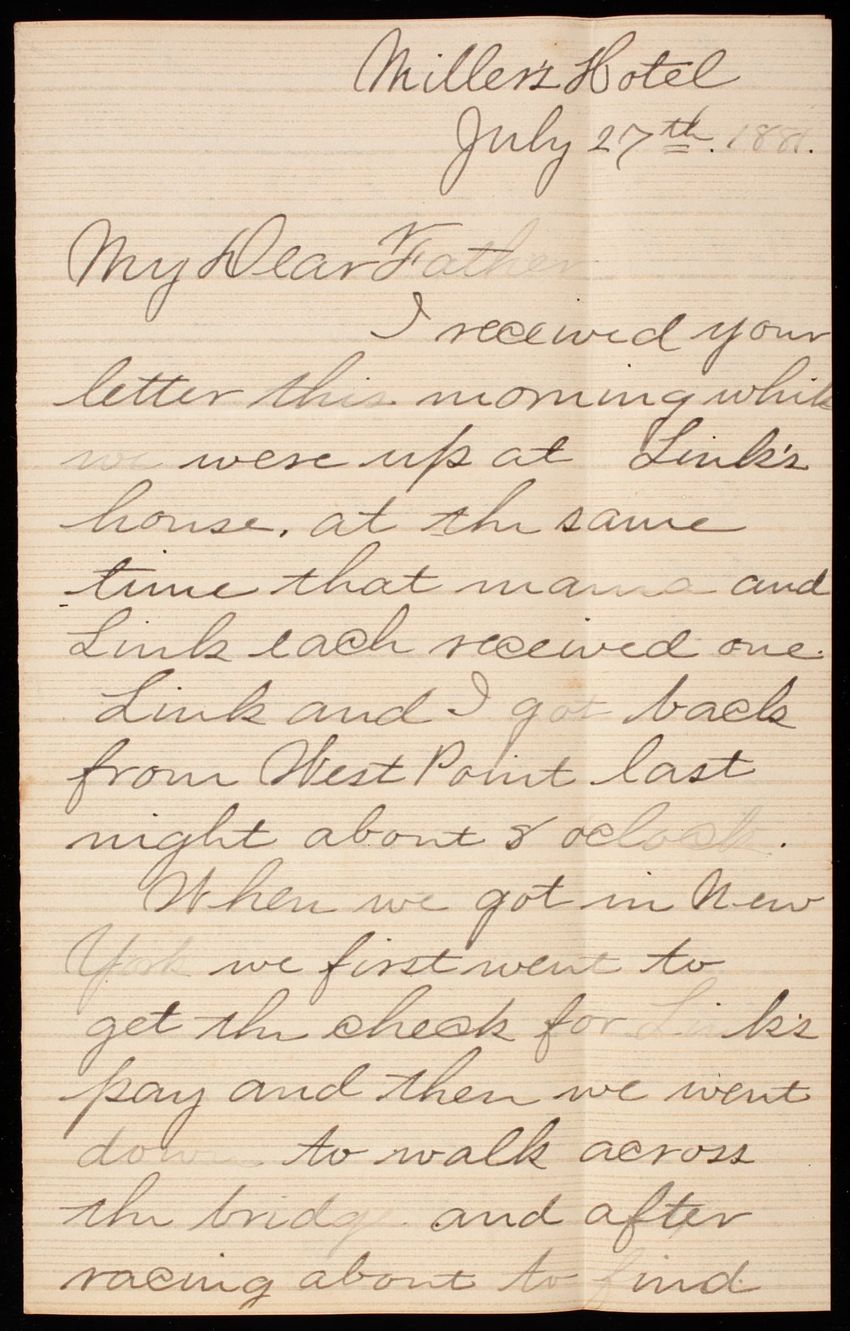 Miller's Hotel
July 27th. 1881.
My Dear Father
I received your
letter this morning while
we were up at Link's
house, at the same
time that mama and
Link each received one.
Link and I got back
from West Point last
night about 8 oclock.
When we got in New
York we first went to
get the check for Link's
pay and then we went
down to walk across
the bridge and after
racing about to find